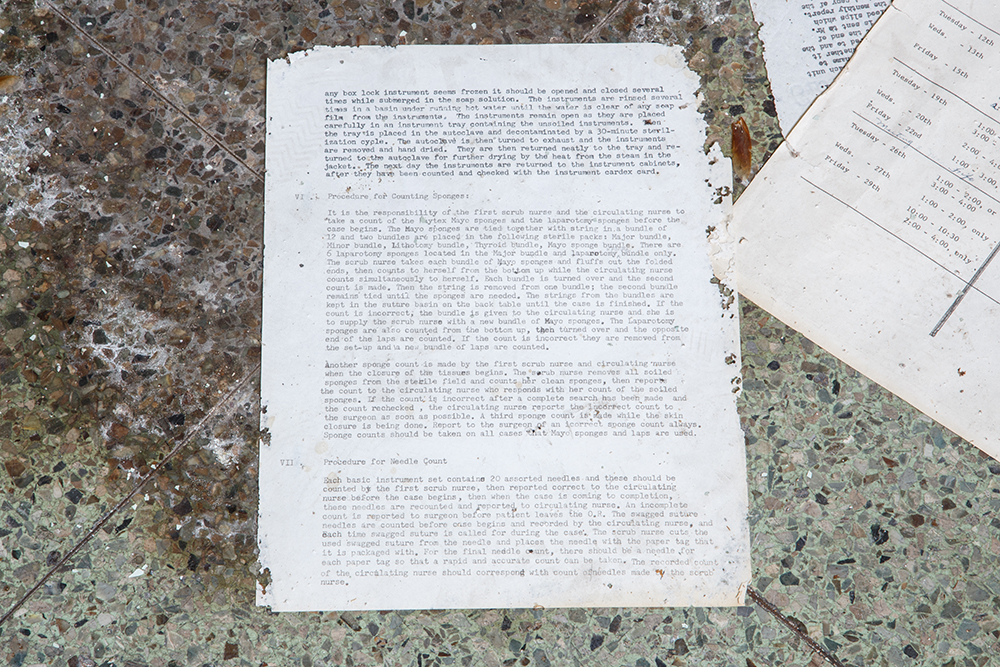 any box lock instrument seems frozen it should be opened and closed several
times while submerged in the soap solution. The instruments are rinsed several
times in a basin under running hot water until the water is clear of any soap
film from the instruments. The instruments remain open as they are placed
carefully in an instrument tray containing the unsoiled instruments. When
the tray is placed in the autoclave and decontaminated by a 30-minute steril-
ization cycle. The autoclave is then turned to exhaust and the instruments
are removed and hand dried. They are then returned neatly to the tray and re-
turned to the autoclave for further drying by the heat from the steam in the
jacket. The next day the instruments are returned to the instrument cabinets,
after they have been counted and checked with the instrument cardex card.
VI . Procedure for Counting Sponges:
It is the responsibility of the first scrub nurse and the circulating nurse to
take a count of the Raytex Mayo sponges and the laparotomy sponges before the
case begins. The Mayo sponges are tied together with string in a bundle of
12 and two bundles are placed in the following sterile packs: Major bundle,
Minor bundle, Lithotomy bundle, Thyroid bundle, Mayo sponge bundle. There are
6 laparotomy sponges located in the Major bundle and laparotomy bundle only.
The scrub nurse takes each bundle of Mayo sponges and fluffs out the folded
ends, then counts to herself from the bottom up while the circulating nurse
counts simultaneously to herself. Each bundle is turned over and the second
count is made. Then the string is removed from one bundle; the second bundle
remains tied until the sponges are needed. The strings from the bundles are
kept in the suture basin on the back table until the case is finished. If the
count is incorrect, the bundle is given to the circulating nurse and she is
to supply the scrub nurse with a new bundle of Mayo sponges. The Laparotomy
sponges are also counted from the bottom up, then turned over and the opposite
end of the laps are counted. If the count is incorrect they are removed from
the set-up and a new bundle of laps are counted.
Another sponge count is made by the first scrub nurse and circulating nurse
when the closure of the tissues begins. The scrub nurse removes all soiled
sponges from the sterile field and counts her clean sponges, then reports
the count to the circulating nurse who responds with her count of the soiled
sponges. If the count is incorrect after a complete search has been made and
the count rechecked , the circulating nurse reports the incorrect count to
the surgeon as soon as possible. A third sponge count is made while the skin
closure is being done. Report to the surgeon of an incorrect sponge count always.
Sponge counts should be taken on all cases that Mayo sponges and laps are used.
VII Procedure for Needle Count
Each basic instrument set contains 20 assorted needles and these should be
counted by the first scrub nurse, then reported correct to the circulating
nurse before the case begins, then when the case is coming to completion,
these needles are recounted and reported to circulating nurse. An incomplete
count is reported to surgeon before patient leaves the O.R. The swagged suture
needles are counted before case begins and recorded by the circulating nurse, and
each time swagged suture is called for during the case. The scrub nurse cuts the
used swagged suture from the needle and places the needle with the paper tag that
it is packaged with. For the final needle count, there should be a needle for
each paper tag so that a rapid and accurate count can be taken. The recorded count
of the circulating nurse should correspond with count of needles made by the scrub
nurse.
Tuesday - 12th
Weds. - 13th
Friday - 15th
Tuesday - 19th
Weds. 20th
Friday - 22nd
Tuesday - 26th
Weds. - 27th
Friday - 29th
1:00 -
3:00 -
2:00 - 4
1:00 - 3:00,
1:00 - 2:00,
3:00 - 4:00
1:00 - 2:00 only
10:00 - 10:30
2:00 - 4:00, only
the monthly report.
is sent to Mr.
the end of